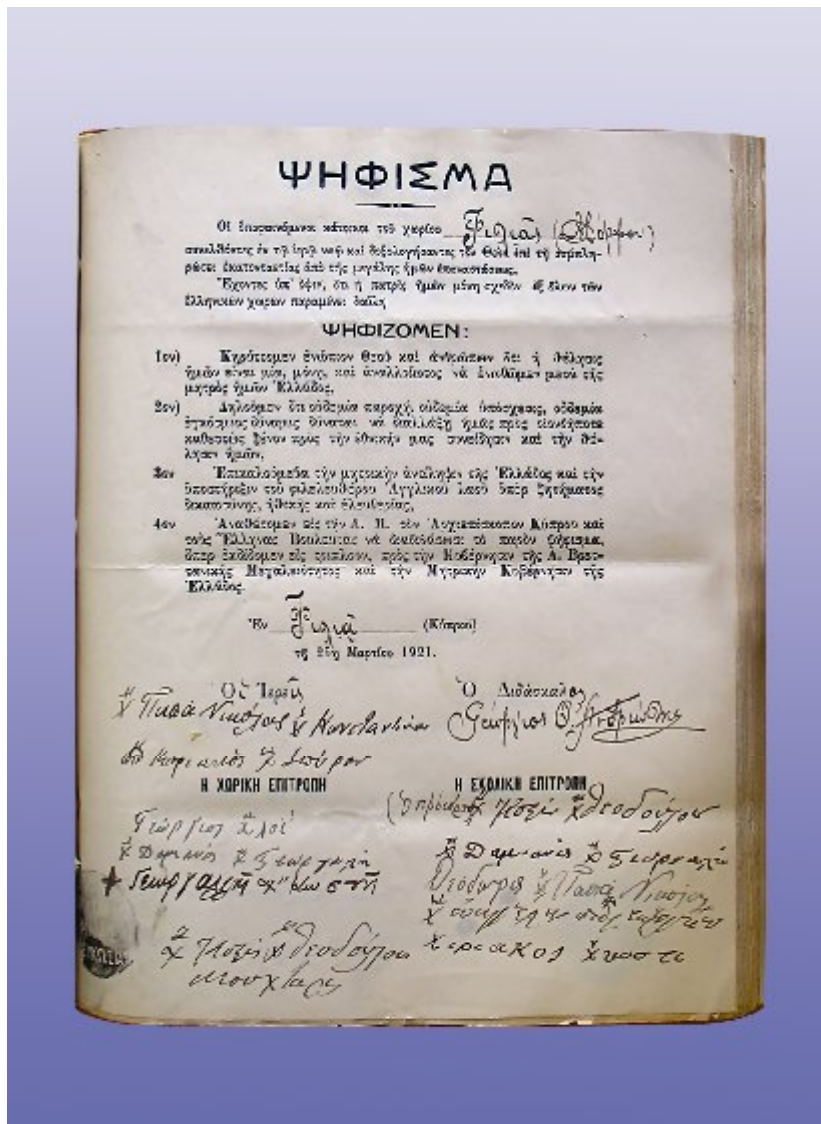 ΨΗΦΙΣΜΑ
Οἱ ὑποφαινόμενοι κάτοικοι τοῦ χωρίου Φιλιᾶς (Μόρφου)
συνελθόντες ἐν τῷ ἱερῷ ναῷ καὶ δοξολογήσαντες τὸν Θεὸν ἐπὶ τῇ συμπλη-
ρώσει ἑκατονταετίας ἀπὸ τῆς μεγάλης ἡμῶν ἐπαναστάσεως.
Ἔχοντες ὑπ' ὄψιν, ὅτι ἡ πατρὶς ἡμῶν μόνη σχεδὸν ἐξ ὅλων τῶν
ἑλληνικῶν χωρῶν παραμένει δούλη
ΨΗΦΙΖΟΜΕΝ:
1ον) Κηρύττομεν ἐνώπιον Θεοῦ καὶ ἀνθρώπων ὅτι ἡ θέλησις
ἡμῶν εἶναι μία, μόνη, καὶ ἀναλλοίωτος νὰ ἑνωθῶμεν μετὰ τῆς
μητρὸς ἡμῶν Ἑλλάδος.
2ον) Δηλοῦμεν ὅτι οὐδεμία παροχή, οὐδεμία ὑπόσχεσις, οὐδεμία
ἐγκόσμιος δύναμις δύναται νὰ ἡμᾶς πρὸς οἱονδήποτε
καθεστὼς ξένον πρὸς τὴν ἐθνικήν μας συνείδησιν καὶ τὴν θέ-
λησιν ἡμῶν.
3ον Ἐπικαλούμεθα τὴν μητρικὴν ἀντίληψιν τῆς Ἑλλάδος καὶ τὴν
ὑποστήριξιν τοῦ φιλελευθέρου Ἀγγλικοῦ λαοῦ ὑπὲρ ζητήματος
δικαιοσύνης, ἠθικῆς καὶ ἐλευθερίας.
4ον Ἀναθέτομεν εἰς τὴν Α. Π. τὸν Ἀρχιεπίσκοπον Κύπρου καὶ
τοὺς Ἕλληνας Βουλευτὰς νὰ διαβιβάσωσι τὸ παρὸν ψήφισμα,
ὅπερ ἐκδίδομεν εἰς τριπλοῦν, πρὸς τὴν Κυβέρνησιν τῆς Α. Βρετ-
τανικῆς Μεγαλειότητος καὶ τὴν Μητρικὴν Κυβέρνησιν τῆς
Ἑλλάδος.
Ἐν Φιλιᾷ (Κύπρου)
τῇ 25ῃ Μαρτίου 1921.
Οἱ Ἱερεῖς
Παπᾶ Νικόλας Κωνσταντίνου
Σπύρου
Ὁ Διδάσκαλος
Γεώργιος
Η ΧΩΡΙΚΗ ΕΠΙΤΡΟΠΗ
Γεώργιος
Δαμιανός
Θεοδούλου
μουχτάρης
Η ΣΧΟΛΙΚΗ ΕΠΙΤΡΟΠΗ
Θεοδούλου
Δαμιανός
Παπᾶ Νικόλα